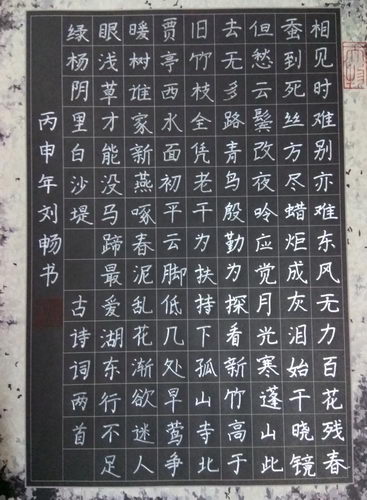 相见时难别亦难东风无力百花残春
蚕到死丝方尽蜡炬成灰泪始干晓镜
但愁云鬓改夜吟应觉月光寒蓬山此
去无多路青鸟殷勤为探看新竹高于
旧竹枝全凭老干为扶持下孤山寺北
贾亭西水面初平云脚低几处早莺争
暖树谁家新燕啄春泥乱花渐欲迷人
眼浅草才能没马蹄最爱湖东行不足
绿杨阴里白沙堤 古诗词两首
丙申年刘畅书